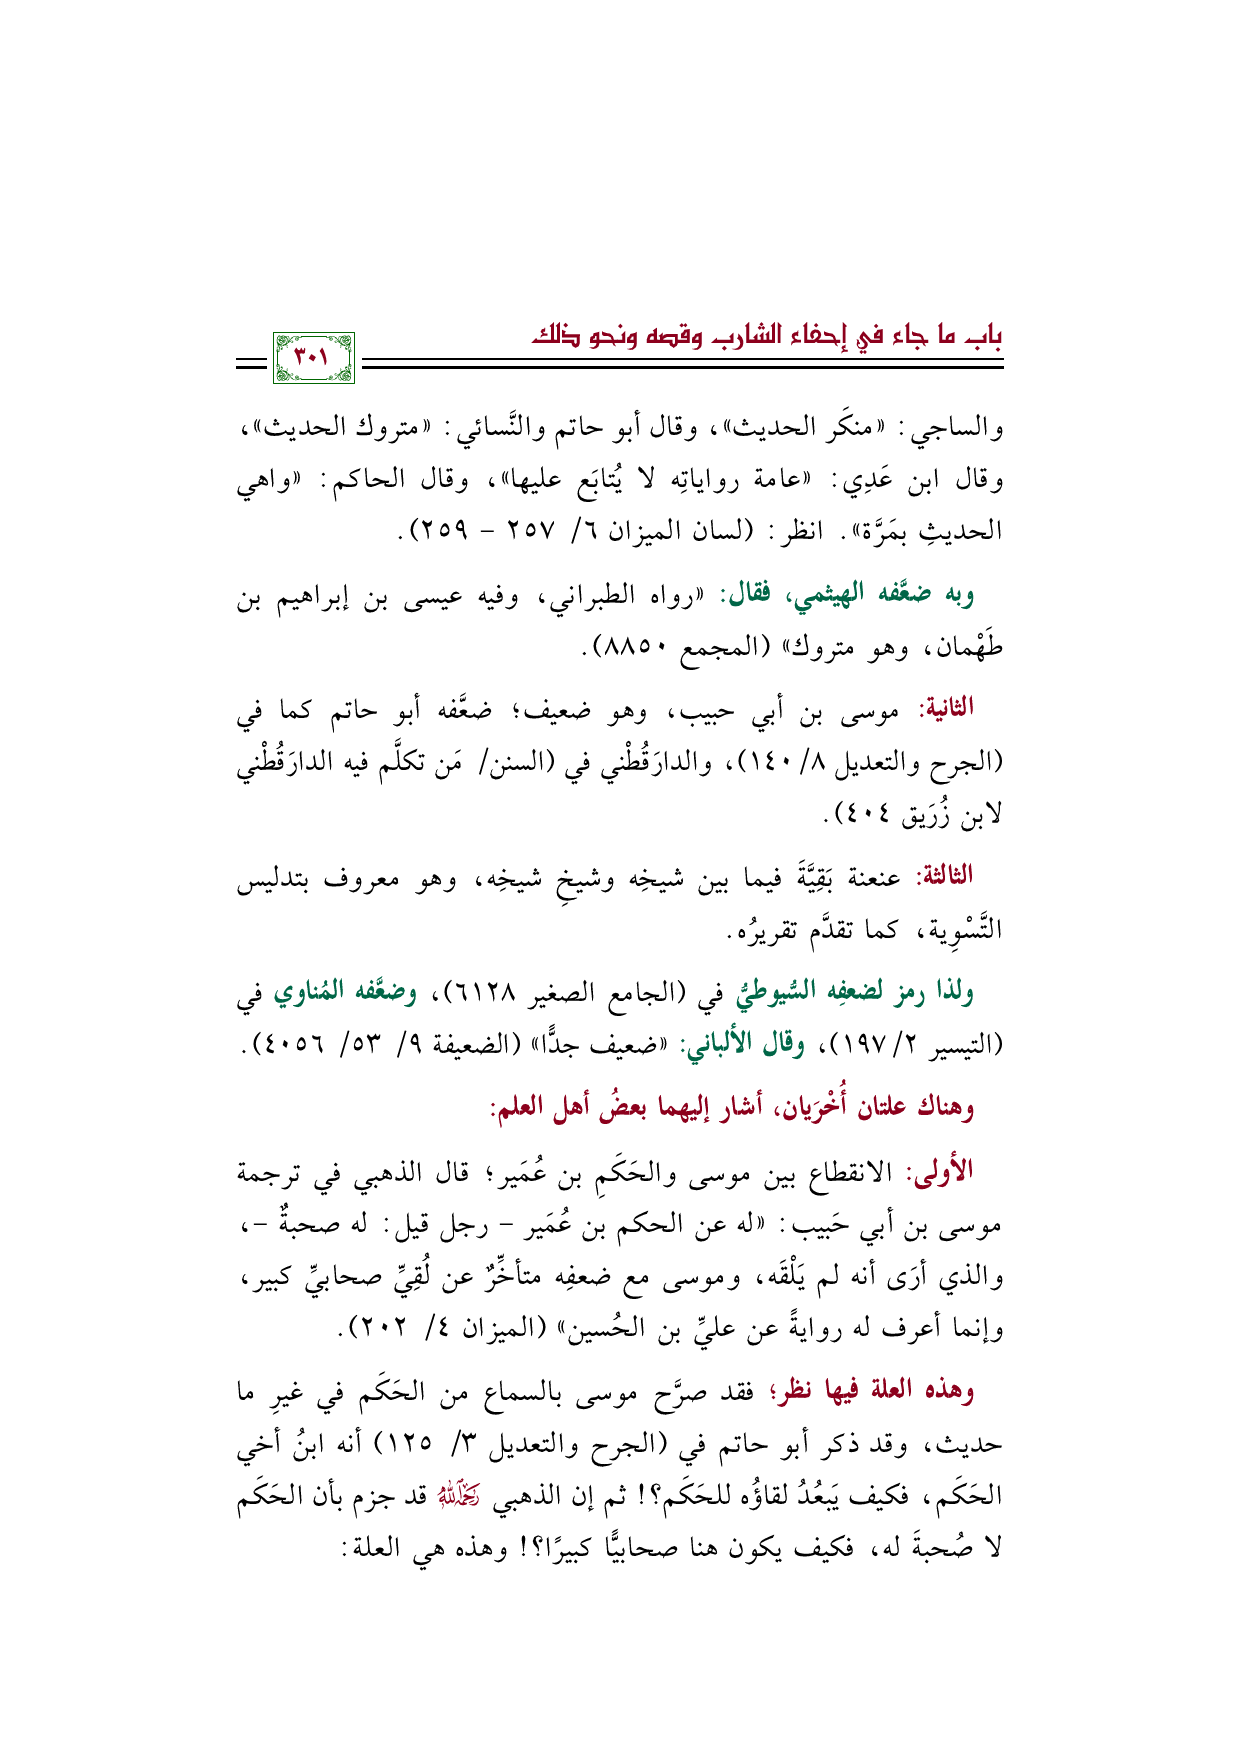 باب ما جاء في إحفاء الشارب وقصه ونحو ذلك
٣٠١
والساجي: «منكَر الحديث»، وقال أبو حاتم والنَّسائي: «متروك الحديث»،
وقال ابن عَدِي: «عامة رواياتِه لا يُتابَع عليها»، وقال الحاكم: «واهي
الحديثِ بمَرَّة». انظر: (لسان الميزان ٦/ ٢٥٧ – ٢٥٩).
وبه ضعَّفه الهيثمي، فقال: «رواه الطبراني، وفيه عيسى بن إبراهيم بن
طَهْمان، وهو متروك» (المجمع ٨٨٥٠).
الثانية: موسى بن أبي حبيب، وهو ضعيف؛ ضعَّفه أبو حاتم كما في
(الجرح والتعديل ٨/ ١٤٠)، والدارَقُطْني في (السنن/ مَن تكلَّم فيه الدارَقُطْني
لابن زُرَيق ٤٠٤).
الثالثة: عنعنة بَقِيَّةَ فيما بين شيخِه وشيخِ شيخِه، وهو معروف بتدليس
التَّسْوِية، كما تقدَّم تقريرُه.
ولذا رمز لضعفِه السُّيوطيُّ في (الجامع الصغير ٦١٢٨)، وضعَّفه المُناوي في
(التيسير ٢/ ١٩٧)، وقال الألباني: «ضعيف جدًّا» (الضعيفة ٩/ ٥٣/ ٤٠٥٦).
وهناك علتان أُخْرَيان، أشار إليهما بعضُ أهل العلم:
الأولى: الانقطاع بين موسى والحَكَمِ بن عُمَير؛ قال الذهبي في ترجمة
موسى بن أبي حَبيب: «له عن الحكم بن عُمَير – رجل قيل: له صحبةٌ –،
والذي أرَى أنه لم يَلْقَه، وموسى مع ضعفِه متأخِّرٌ عن لُقِيِّ صحابيٍّ كبير،
وإنما أعرف له روايةً عن عليِّ بن الحُسين» (الميزان ٤/ ٢٠٢).
وهذه العلة فيها نظر؛ فقد صرَّح موسى بالسماع من الحَكَم في غيرِ ما
حديث، وقد ذكر أبو حاتم في (الجرح والتعديل ٣/ ١٢٥) أنه ابنُ أخي
الحَكَم، فكيف يَبعُدُ لقاؤُه للحَكَم؟! ثم إن الذهبي رحمه الله قد جزم بأن الحَكَم
لا صُحبةَ له، فكيف يكون هنا صحابيًّا كبيرًا؟! وهذه هي العلة: